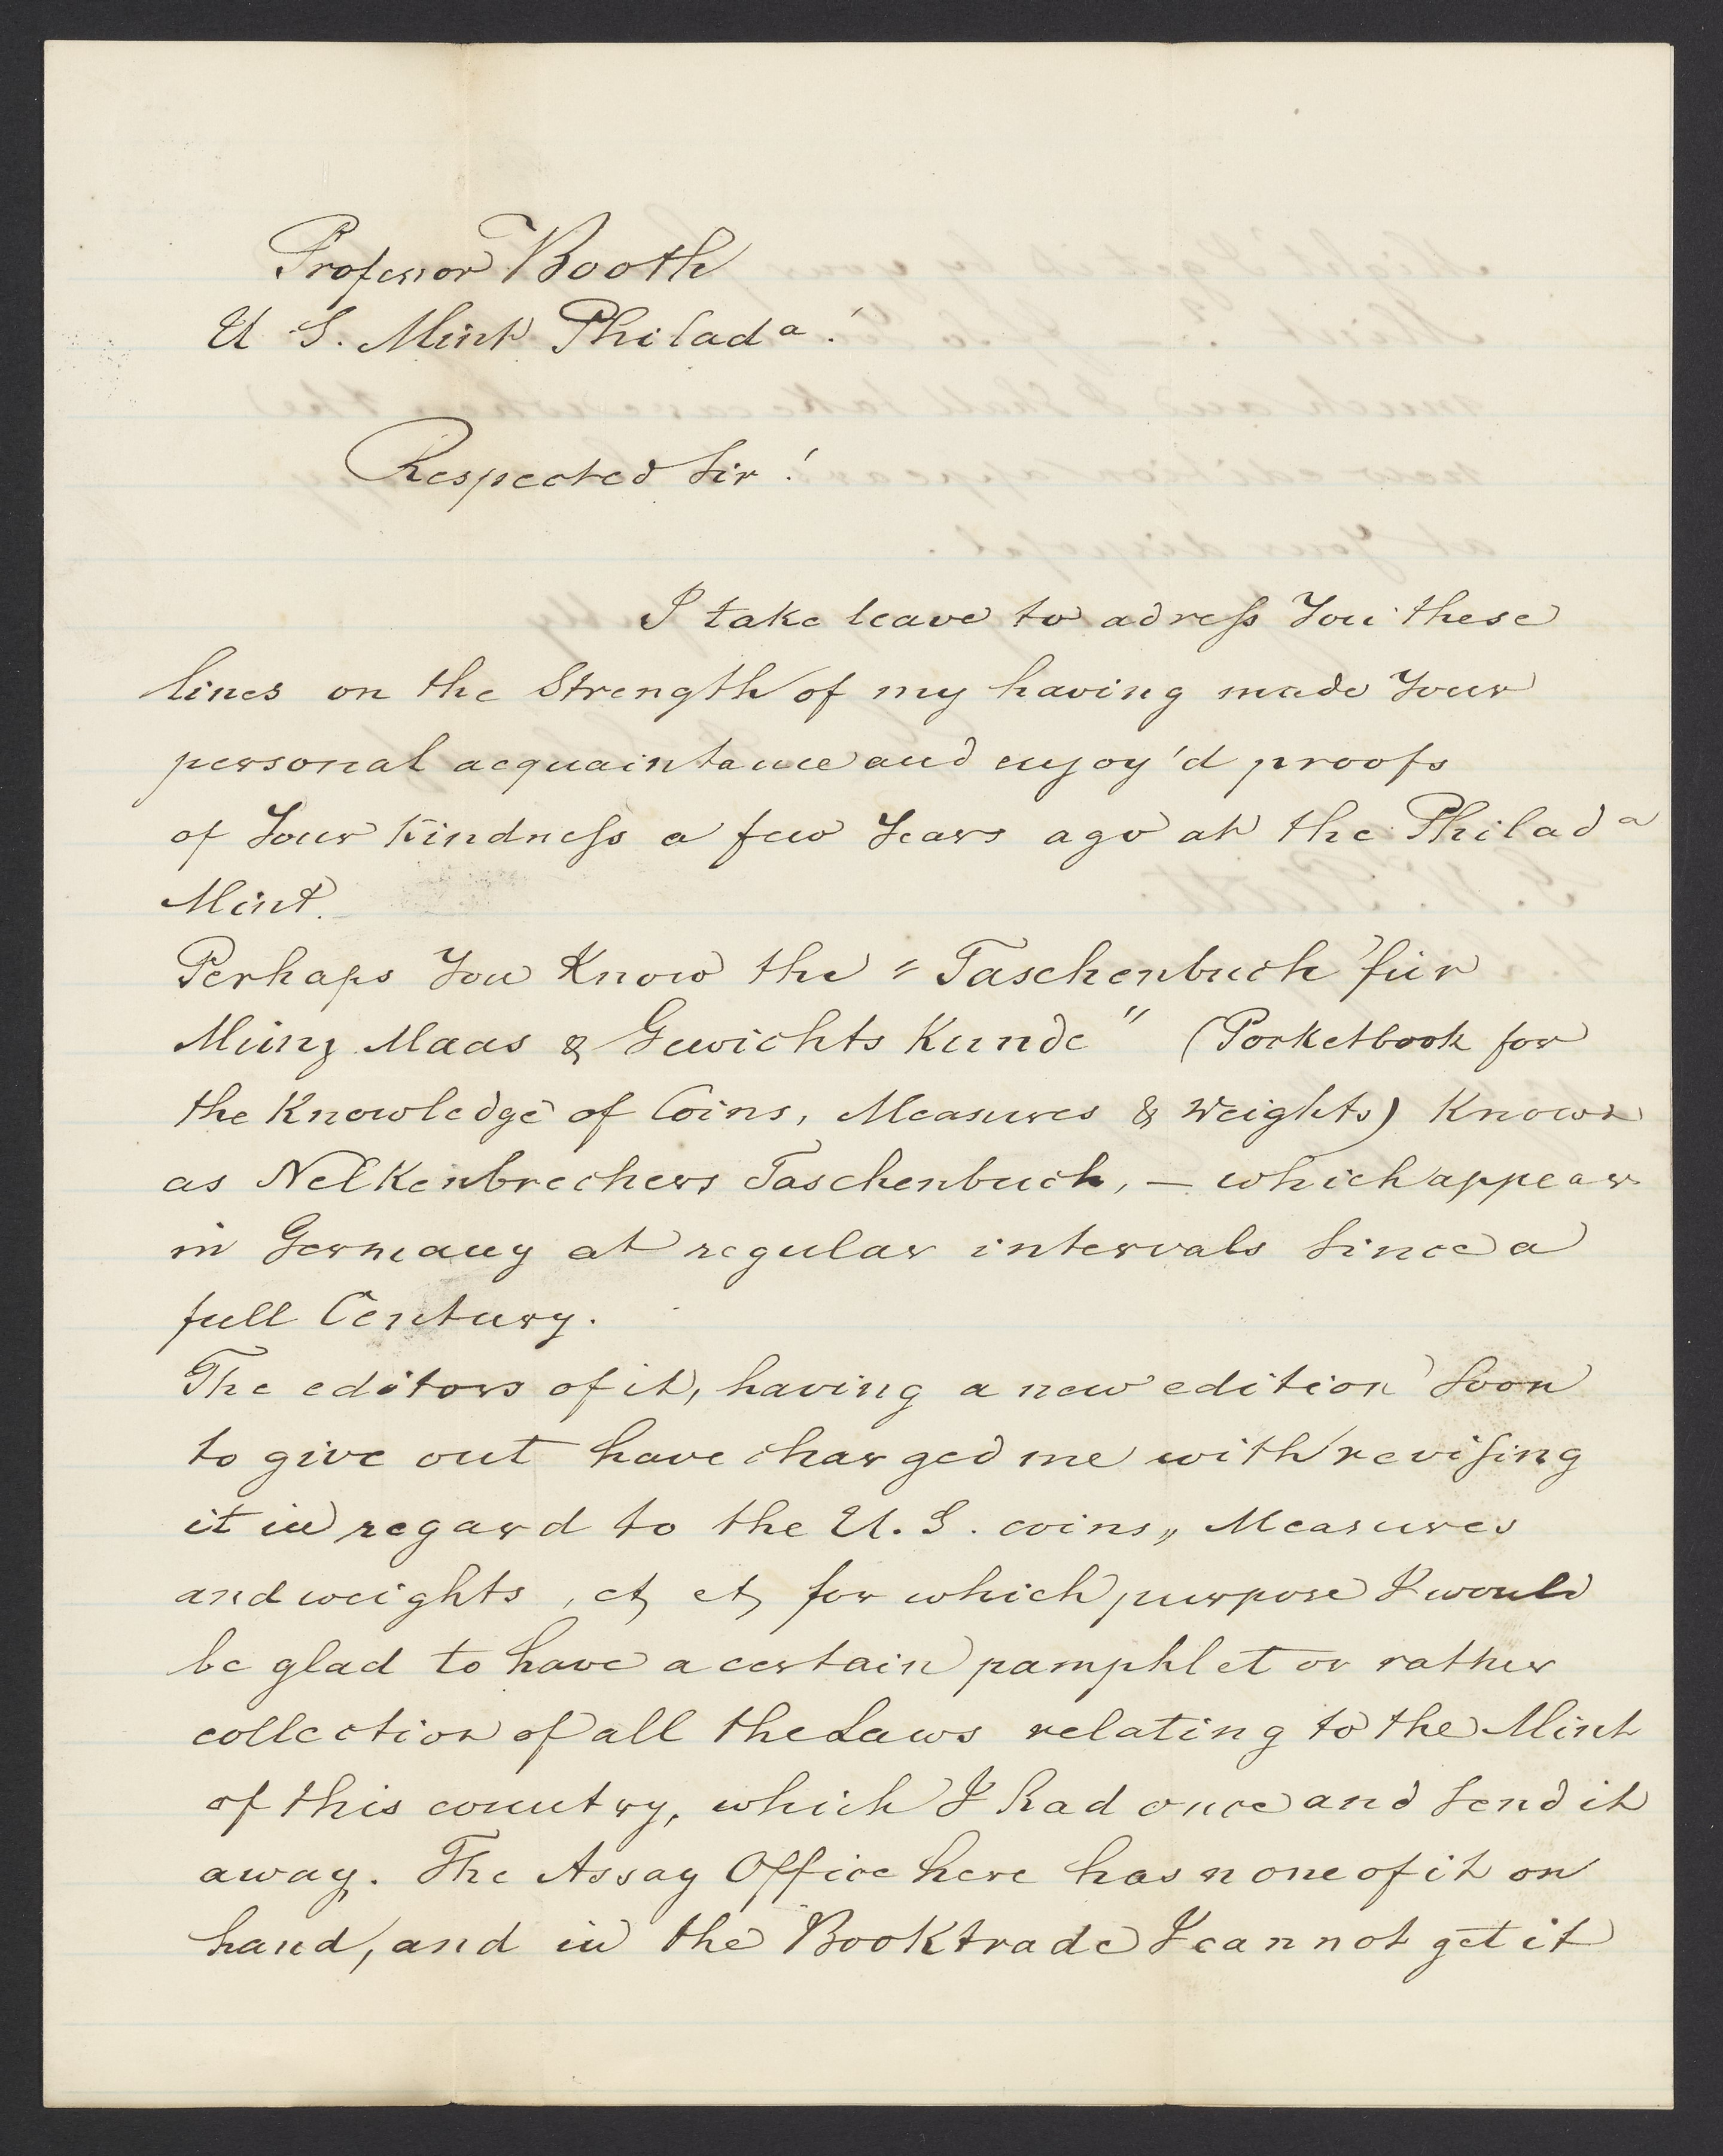 Professor Booth
U S. Mint Philada!
Respected Sir!
I take leave to adress You these
lines on the Strength of my having made Your
personal acquaintance and enjoy'd proofs
of Your Kindness a few Years ago at the Philada
Mint.
Perhaps You Know the "Taschenbuch für
Münz Maas & Gewichts Kunde" (Pocketbook for
the Knowledge of Coins, Measures & Weights) Known
as Nelkenbrechers Taschenbuch, — which appear
in Germany at regular intervals Since a
full Century.
The editors of it, having a new edition Soon
to give out have charged me with revising
it in regard to the U.S. coins,, Measures
and weights, et, et, for which purpose I would
be glad to have a certain pamphlet or rather
collection of all the Laws relating to the Mint
of this country, which I had once and Send it
away. The Assay Office here has none of it on
hand, and in the Booktrade I cannot get it